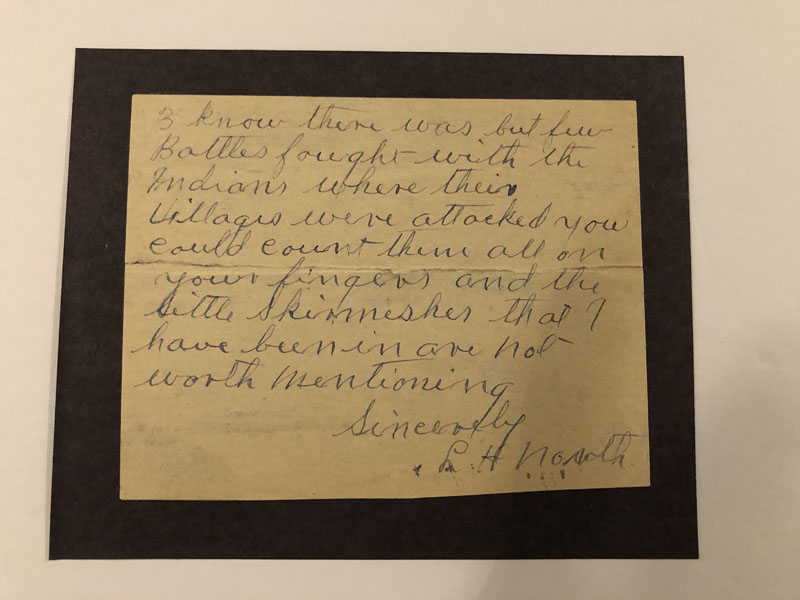 I know there was but few
Battles fought with the
Indians where their
Villages were attacked you
could count them all on
your fingers and the
little Skirmeshes that I
have been in are not
worth mentioning
Sincerely
L H North